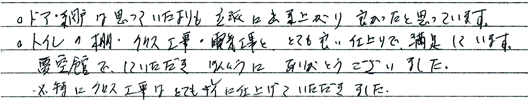 ○ドア・網戸は思っていたよりも立派に出来上がり良かったと思っています。
○トイレの棚・クロス工事・電気工事と、とても良い仕上りで、満足しています。
夢空館でしていただきほんとうにありがとうございました。
※特にクロス工事はとてもキレイに仕上げていただきました。